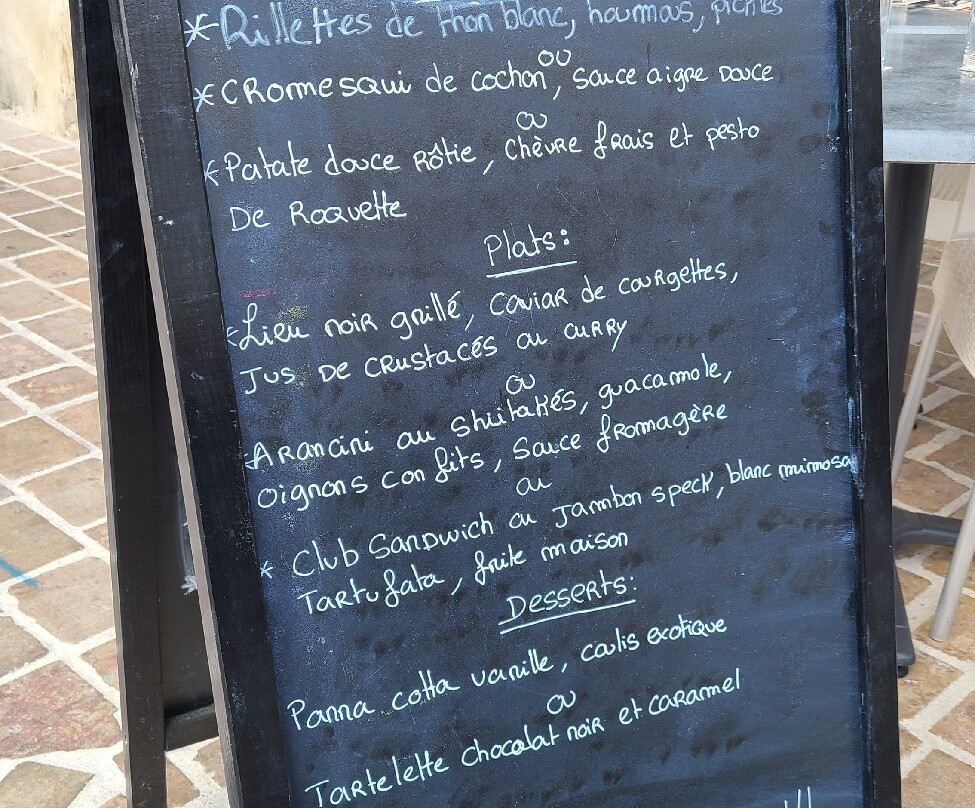 *Rillettes de thon blanc, houmous, pickles
ou
*Cromesqui de cochon, sauce aigre douce
ou
*Patate douce Rôtie, chèvre frais et pesto
De Roquette
Plats:
*Lieu noir grillé, caviar de courgettes,
Jus De crustacés au curry
ou
*Arancini au shiitakés, guacamole,
oignons confits, sauce fromagère
ou
* Club Sandwich au Jambon speck, blanc mimosa
Tartufata, frite maison
Desserts:
Panna cotta vanille, coulis exotique
ou
Tartelette chocolat noir et caramel